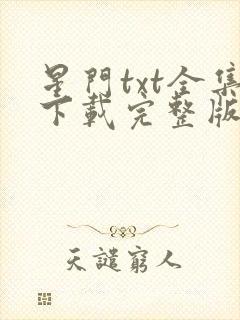 星門txt全集
下載完整版
天譴窮人